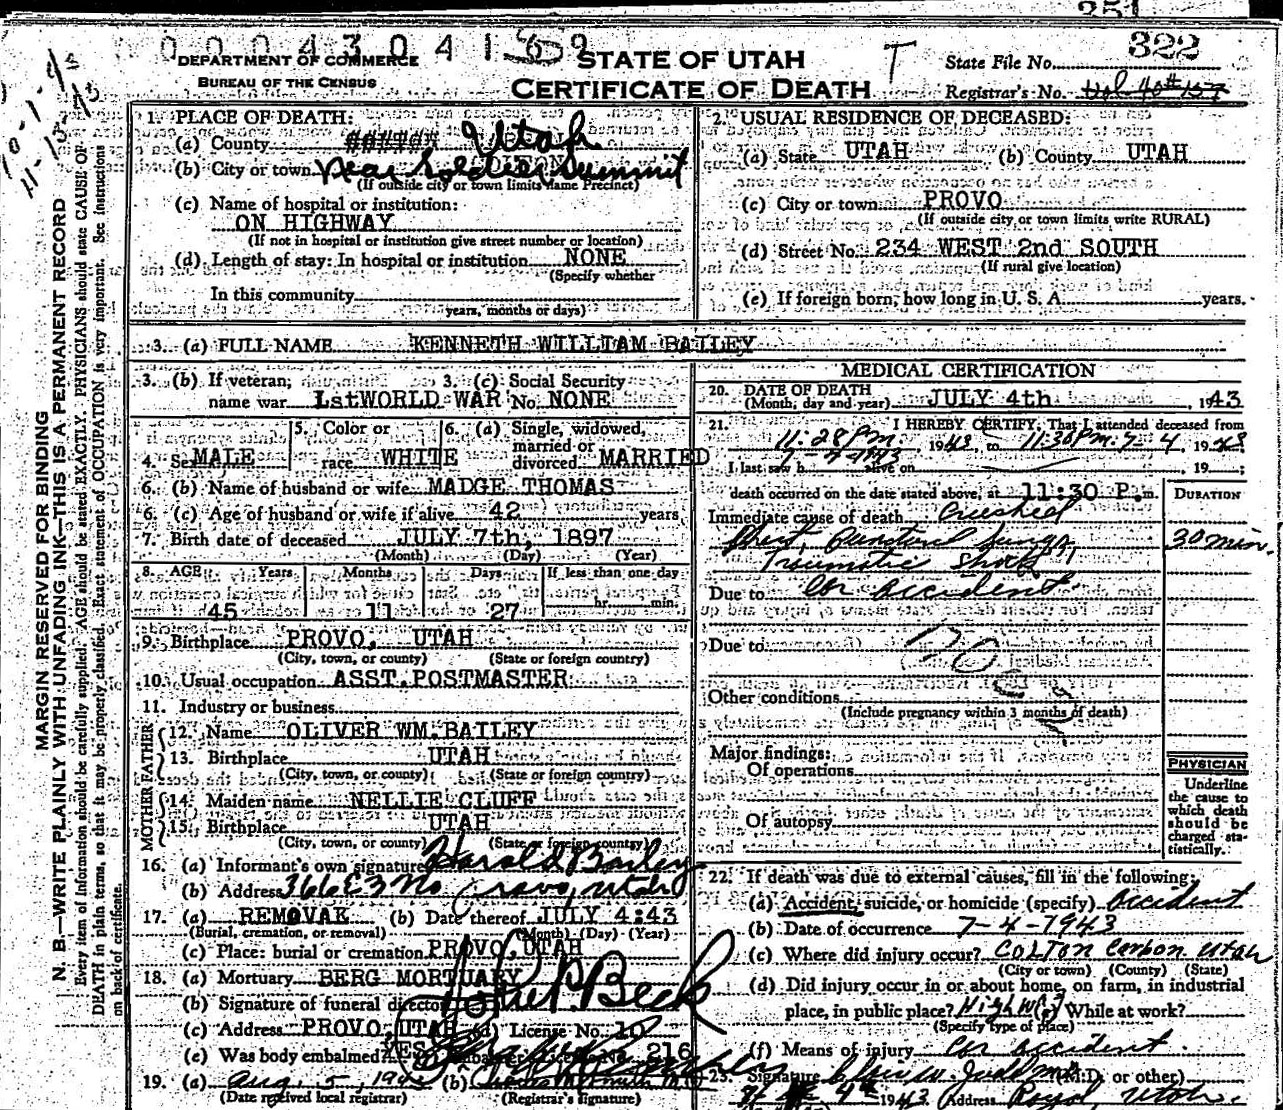 351
00043041 69
DEPARTMENT OF COMMERCE
BUREAU OF THE CENSUS
STATE OF UTAH
CERTIFICATE OF DEATH
T
State File No. 322
Registrar's No. Vol 40# 157
10-1-45
MARGIN RESERVED FOR BINDING
N. B.—WRITE PLAINLY WITH UNFADING INK—THIS IS A PERMANENT RECORD
Every item of information should be carefully supplied. AGE should be stated EXACTLY. PHYSICIANS should state CAUSE OF
DEATH in plain terms, so that it may be properly classified. Exact statement of OCCUPATION is very important. See instructions
on back of certificate.
1. PLACE OF DEATH:
(a) County ###### Utah
(b) City or town near Soldier Summit
(If outside city or town limits name Precinct)
(c) Name of hospital or institution:
ON HIGHWAY
(If not in hospital or institution give street number or location)
(d) Length of stay: In hospital or institution NONE
(Specify whether
In this community
years, months or days)
2. USUAL RESIDENCE OF DECEASED:
(a) State UTAH (b) County UTAH
(c) City or town PROVO
(If outside city or town limits write RURAL)
(d) Street No. 234 WEST 2nd SOUTH
(If rural give location)
(e) If foreign born, how long in U. S. A. years.
3. (a) FULL NAME KENNETH WILLIAM BAILEY
3. (b) If veteran, name war 1stWORLD WAR
3. (c) Social Security No. NONE
4. Sex MALE
5. Color or race WHITE
6. (a) Single, widowed, married or divorced MARRIED
6. (b) Name of husband or wife MADGE THOMAS
6. (c) Age of husband or wife if alive 42 years
7. Birth date of deceased JULY 7th, 1897
(Month) (Day) (Year)
8. AGE Years Months Days If less than one day
45 11 27 hr. min.
9. Birthplace PROVO, UTAH
(City, town, or county) (State or foreign country)
10. Usual occupation ASST.POSTMASTER
11. Industry or business
FATHER
12. Name OLIVER WM.BAILEY
13. Birthplace UTAH
(City, town, or county) (State or foreign country)
MOTHER
14. Maiden name NELLIE CLUFF
15. Birthplace UTAH
(City, town, or county) (State or foreign country)
16. (a) Informant's own signature Harold Bailey
(b) Address 366 E 3 No Provo, Utah
17. (a) REMOVAK (b) Date thereof JULY 4:43
(Burial, cremation, or removal) (Month) (Day) (Year)
(c) Place: burial or cremation PROVO,UTAH
18. (a) Mortuary BERG MORTUARY
(b) Signature of funeral director P. Beck
(c) Address PROVO,UTAH (d) License No. 10
(e) Was body embalmed? YES Embalmer's License No. 216
19. (a) Aug. 5, 1943 (b)
(Date received local registrar) (Registrar's signature)
MEDICAL CERTIFICATION
20. DATE OF DEATH
(Month, day and year) JULY 4th, 1943
21. I HEREBY CERTIFY, That I attended deceased from
11:28 P.m. 1943, to 11:30 P.m. 7-4, 1943
7-4-1943
I last saw h alive on , 19 ;
death occurred on the date stated above, at 11:30 P.m.
DURATION
Immediate cause of death Crushed
Chest, punctured lungs, 30 min.
Traumatic shock,
Due to Car accident
Due to
Other conditions
(Include pregnancy within 3 months of death)
Major findings:
Of operations
Of autopsy
PHYSICIAN
Underline
the cause to
which death
should be
charged sta-
tistically.
22. If death was due to external causes, fill in the following:
(a) Accident, suicide, or homicide (specify) Accident
(b) Date of occurrence 7-4-1943
(c) Where did injury occur? COLTON Carbon Utah
(City or town) (County) (State)
(d) Did injury occur in or about home, on farm, in industrial
place, in public place? HighWay (e) While at work?
(Specify type of place)
(f) Means of injury Car accident.
23. Signature (M.D. or other)
1943 Address Royal, Utah.